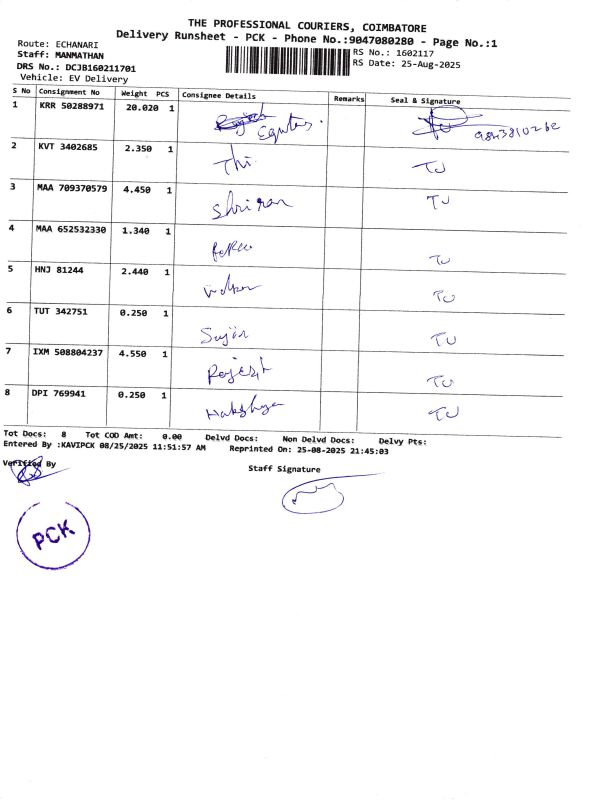 THE PROFESSIONAL COURIERS, COIMBATORE
Delivery Runsheet - PCK - Phone No.:9047080280 - Page No.:1
Route: ECHANARI
Staff: MANMATHAN
DRS No.: DCJB160211701
Vehicle: EV Delivery
RS No.: 1602117
RS Date: 25-Aug-2025
S No Consignment No Weight PCS Consignee Details Remarks Seal & Signature
1 KRR 50288971 20.020 1 Equitas.
2 KVT 3402685 2.350 1 Thi TU
3 MAA 709370579 4.450 1 Shriram TU
4 MAA 652532330 1.340 1 TU
5 HNJ 81244 2.440 1 TU
6 TUT 342751 0.250 1 Sujin TU
7 IXM 508804237 4.550 1 Rajesh TU
8 DPI 769941 0.250 1 TU
Tot Docs: 8 Tot COD Amt: 0.00 Delvd Docs: Non Delvd Docs: Delvy Pts:
Entered By :KAVIPCK 08/25/2025 11:51:57 AM Reprinted On: 25-08-2025 21:45:03
Verified By
Staff Signature
PCK